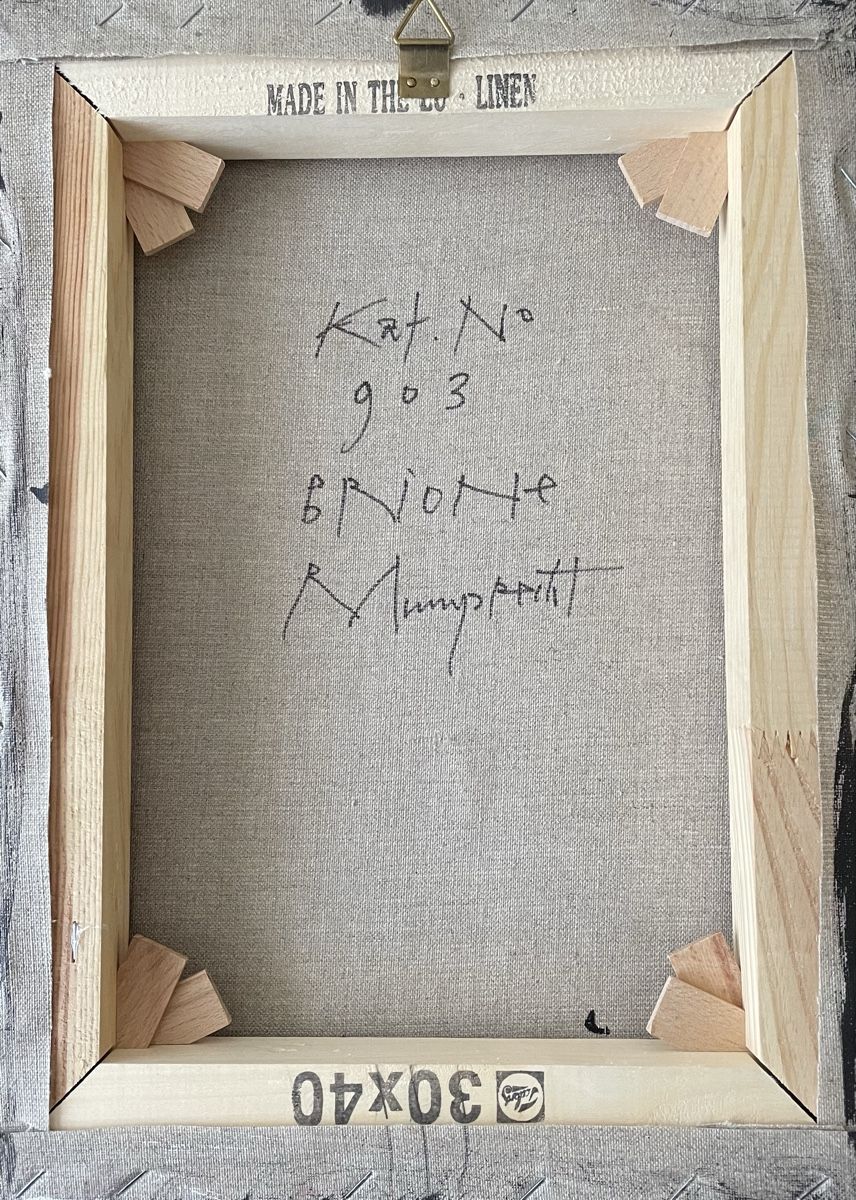 MADE IN THE EU · LINEN
Kat. No
903
BRioNe
R Mumprecht
30x40